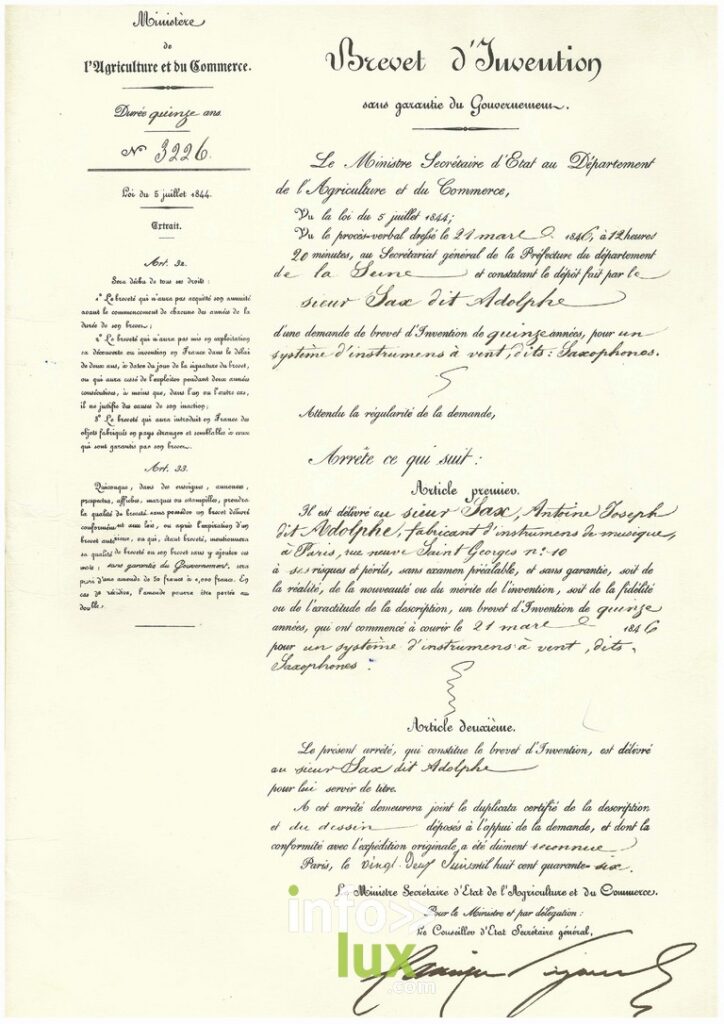 Ministère
de
l'Agriculture et du Commerce.
Durée quinze ans.
N° 3226.
Loi du 5 juillet 1844.
Extrait.
Art. 32.
Sera déchu de tous ses droits :
1° Le breveté qui n'aura pas acquitté son annuité
avant le commencement de chacune des années de la
durée de son brevet ;
2° Le breveté qui n'aura pas mis en exploitation
sa découverte ou invention en France dans le délai
de deux ans, à dater du jour de la signature du brevet,
ou qui aura cessé de l'exploiter pendant deux années
consécutives, à moins que, dans l'un ou l'autre cas,
il ne justifie des causes de son inaction ;
3° Le breveté qui aura introduit en France des
objets fabriqués en pays étranger et semblables à ceux
qui sont garantis par son brevet.
Art. 33.
Quiconque, dans des enseignes, annonces,
prospectus, affiches, marques ou estampilles, prendra
la qualité de breveté sans posséder un brevet délivré
conformément aux lois, ou après l'expiration d'un
brevet antérieur, ou qui, étant breveté, mentionnera
sa qualité de breveté ou son brevet sans y ajouter ces
mots : sans garantie du Gouvernement, sera
puni d'une amende de 50 francs à 1,000 francs. En
cas de récidive, l'amende pourra être portée au
double.
Brevet d'Invention
sans garantie du Gouvernement.
Le Ministre Secrétaire d'Etat au Département
de l'Agriculture et du Commerce,
Vu la loi du 5 juillet 1844;
Vu le procès-verbal dressé le 21 mars 1846, à 12 heures
20 minutes, au Secrétariat général de la Préfecture du département
de la Seine et constatant le dépôt fait par le
sieur Sax dit Adolphe
d'une demande de brevet d'Invention de quinze années, pour un
système d'instrumens à vent, dits : Saxophones.
Attendu la régularité de la demande,
Arrête ce qui suit :
Article premier.
Il est délivré au sieur Sax, Antoine Joseph
dit Adolphe, fabricant d'instrumens de musique,
à Paris, rue neuve Saint Georges n° 10
à ses risques et périls, sans examen préalable, et sans garantie, soit de
la réalité, de la nouveauté ou du mérite de l'invention, soit de la fidélité
ou de l'exactitude de la description, un brevet d'Invention de quinze
années, qui ont commencé à courir le 21 mars 1846
pour un système d'instrumens à vent, dits -
Saxophones :
Article deuxième.
Le présent arrêté, qui constitue le brevet d'Invention, est délivré
au sieur Sax dit Adolphe
pour lui servir de titre.
A cet arrêté demeurera joint le duplicata certifié de la description
et du dessin déposés à l'appui de la demande, et dont la
conformité avec l'expédition originale a été dûment reconnue
Paris, le vingt-deux Juin mil huit cent quarante-six.
Le Ministre Secrétaire d'Etat de l'Agriculture et du Commerce.
Pour le Ministre et par délégation :
Le Conseiller d'Etat Secrétaire général,
info>>
lux
.com